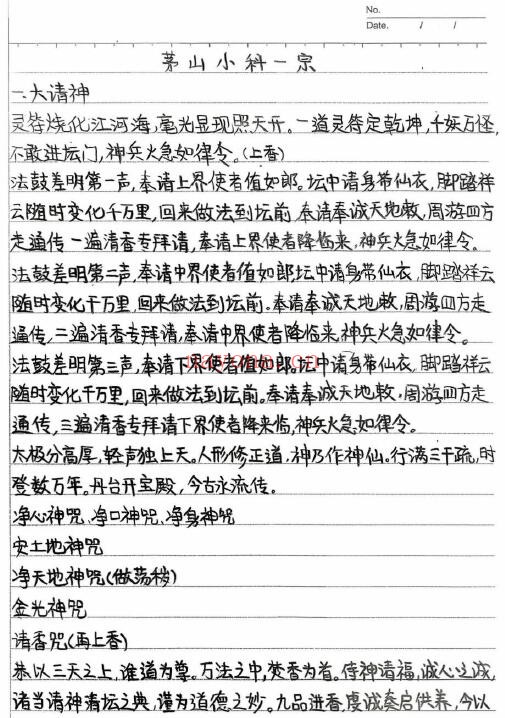 No.
Date. / /
茅山小科一宗
一.大请神
灵符烧化江河海,毫光显现照天开。一道灵符定乾坤,千妖万怪,
不敢进坛门,神兵火急如律令。(上香)
法鼓差明第一声,奉请上界使者值如郎。坛中请身带仙衣,脚踏祥
云随时变化千万里,回来做法到坛前,奉请奉诚天地敕,周游四方
走通传一遍清香专拜请,奉请上界使者降临来,神兵火急如律令。
法鼓差明第二声,奉请中界使者值如郎坛中请身带仙衣,脚踏祥云
随时变化千万里,回来做法到坛前。奉请奉诚天地敕,周游四方走
通传,二遍清香专拜请,奉请中界使者降临来,神兵火急如律令。
法鼓差明第三声,奉请下界使者值如郎,坛中请身带仙衣,脚踏祥云
随时变化千万里,回来做法到坛前。奉请奉诚天地敕,周游四方走
通传,三遍清香专拜请下界使者降来临,神兵火急如律令。
太极分高厚,轻声独上天。人形修正道,神乃作神仙。行满三千疏,时
登数万年。丹台开宝殿,今古永流传。
净心神咒、净口神咒、净身神咒
安土地神咒
净天地神咒(做荡秽)
金光神咒
请香咒(再上香)
恭以三天之上,谁道为尊。万法之中,焚香为首。侍神请福,诚心之诚,
诸当请神清坛之典,谨为道德之妙。九品进香,虔诚奏启供养,今以